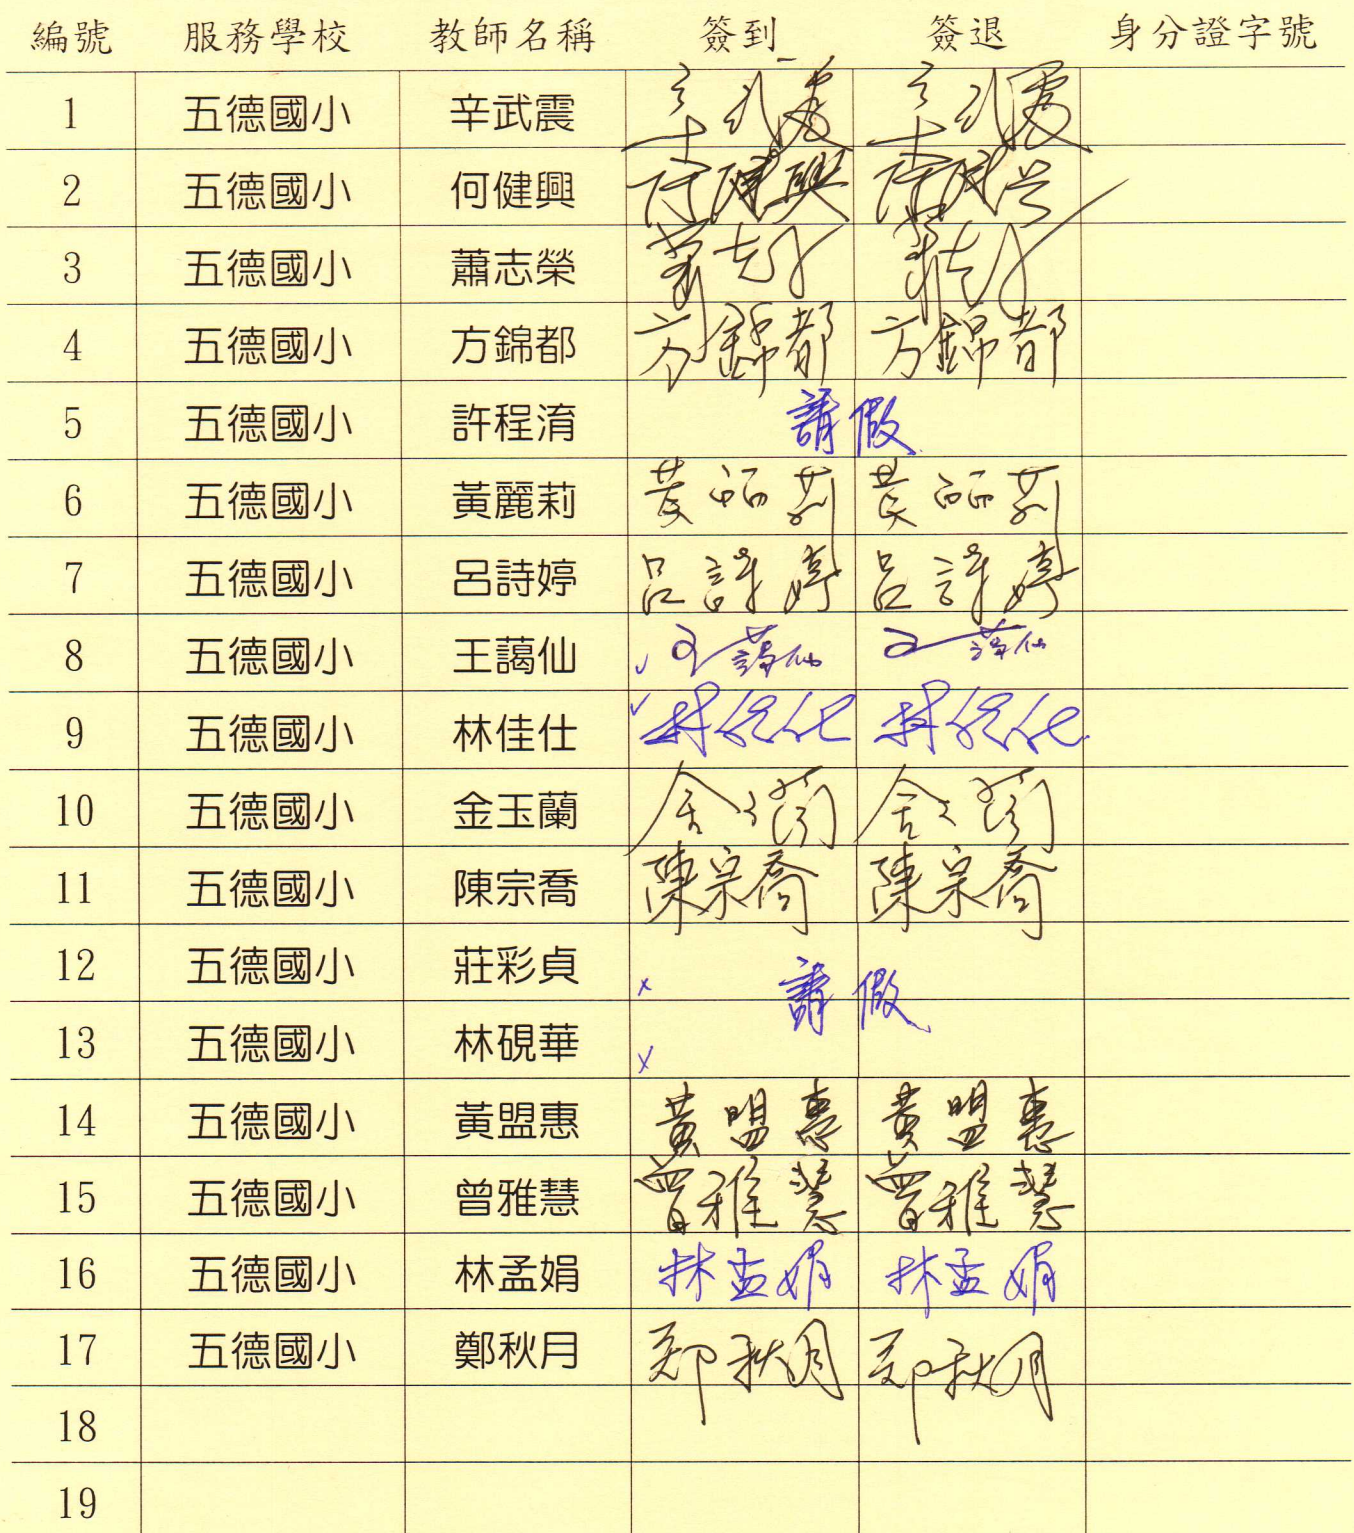 編號 服務學校 教師名稱 簽到 簽退 身分證字號
1 五德國小 辛武震 辛武震 辛武震
2 五德國小 何健興 何健興 何健兴
3 五德國小 蕭志榮 蕭志 蕭志
4 五德國小 方錦都 方錦都 方錦都
5 五德國小 許程淯 請假
6 五德國小 黃麗莉 黃莉 黃莉
7 五德國小 呂詩婷 呂詩婷 呂詩婷
8 五德國小 王藹仙 ✓ 王藹仙 王藹仙
9 五德國小 林佳仕 ✓ 林佳仕 林佳仕
10 五德國小 金玉蘭 金玉蘭 金玉蘭
11 五德國小 陳宗喬 陳宗喬 陳宗喬
12 五德國小 莊彩貞 x 請假
13 五德國小 林硯華 x
14 五德國小 黃盟惠 黃盟惠 黃盟惠
15 五德國小 曾雅慧 曾雅慧 曾雅慧
16 五德國小 林孟娟 林孟娟 林孟娟
17 五德國小 鄭秋月 郑秋月 郑秋月
18
19